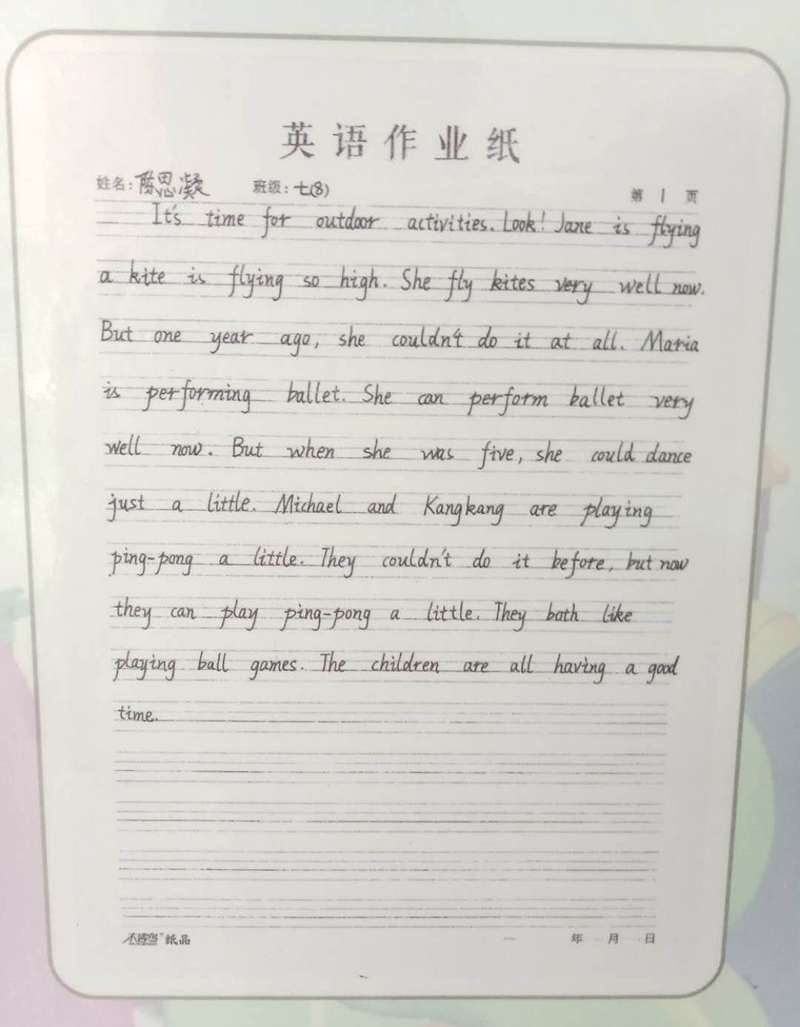 英语作业纸
姓名：陈思凝 班级：七(8)
第 1 页
It's time for outdoor activities. Look! Jane is flying
a kite is flying so high. She fly kites very well now.
But one year ago, she couldn't do it at all. Maria
is performing ballet. She can perform ballet very
well now. But when she was five, she could dance
just a little. Michael and Kangkang are playing
ping-pong a little. They couldn't do it before, but now
they can play ping-pong a little. They both like
playing ball games. The children are all having a good
time.
纸品 年 月 日